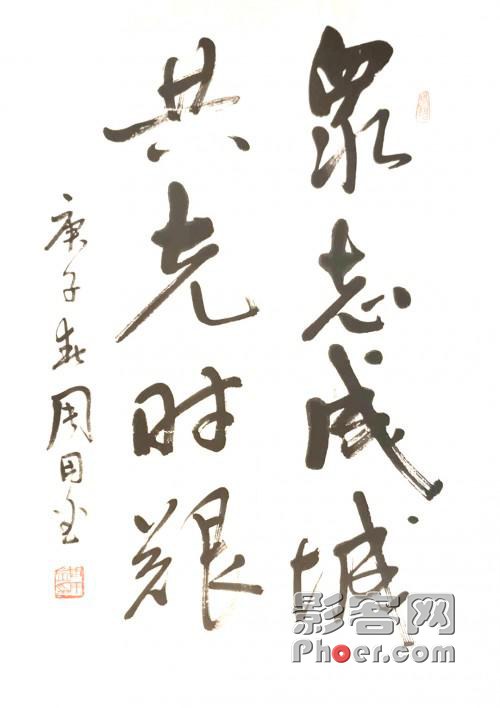 眾志成城
共克时艰
庚子春周因金
影客网
Phoer.com